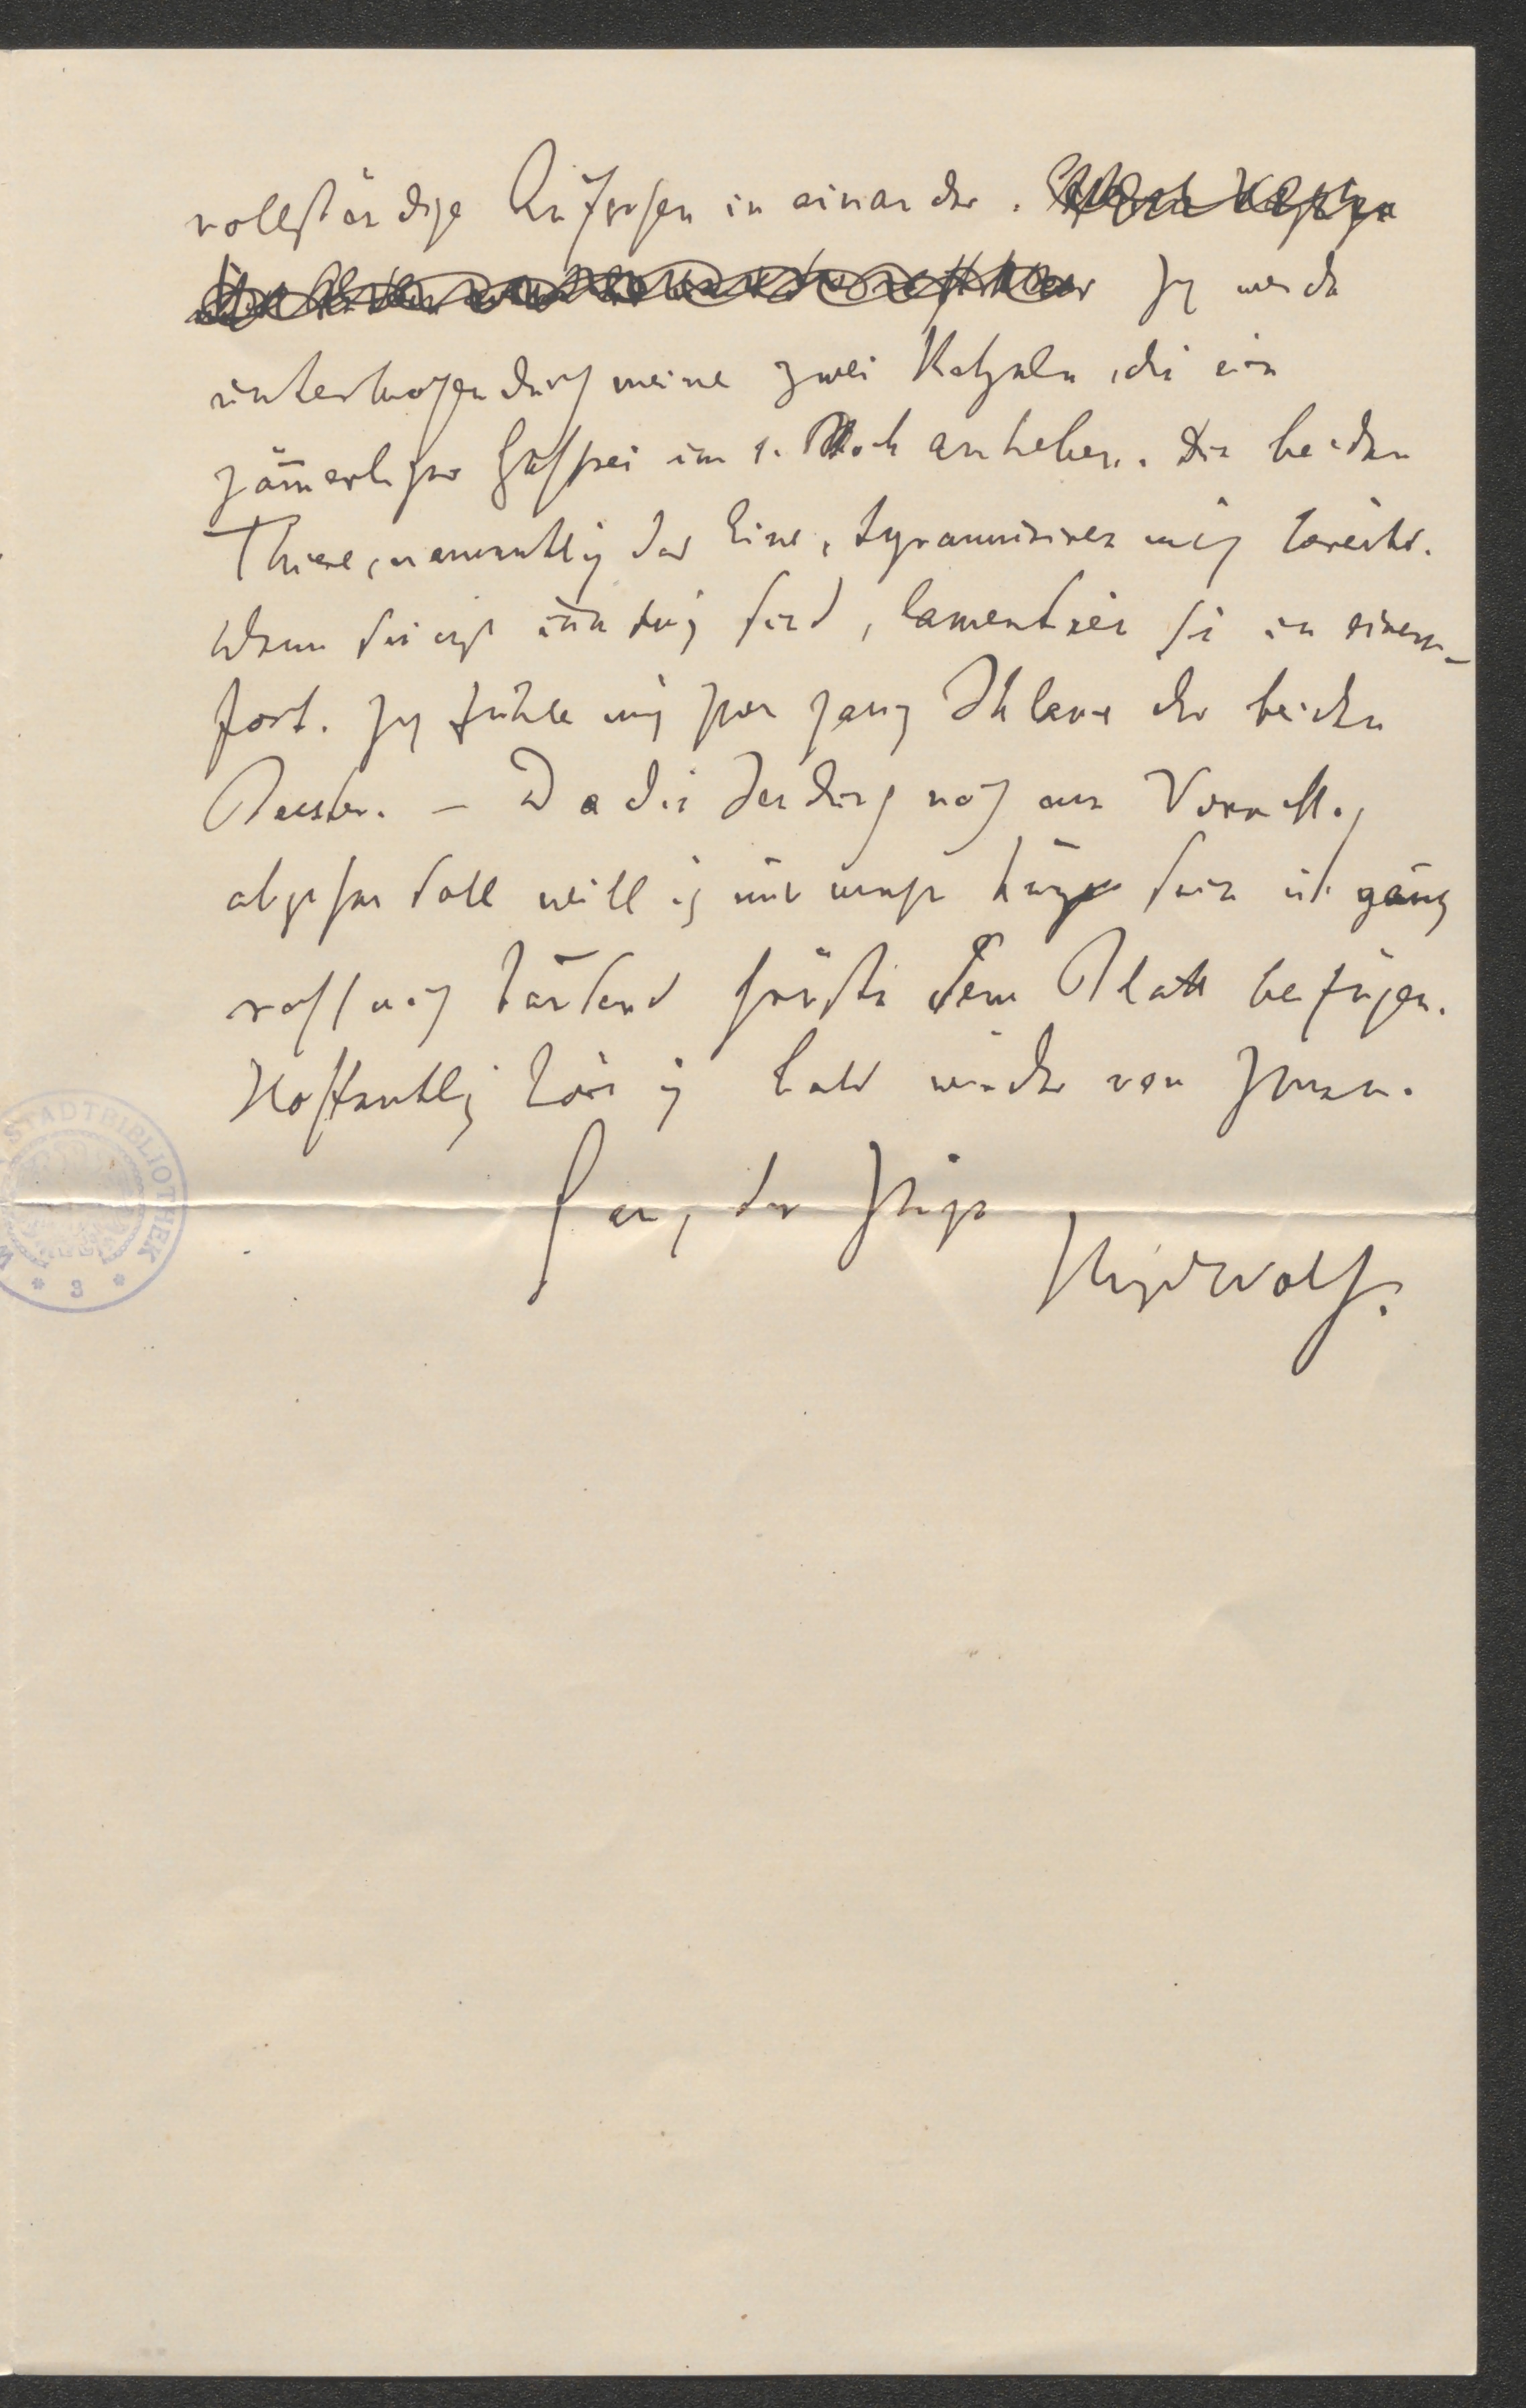 vollständige Aufgehen in einander.
Ich werde
unterbrochen durch meine zwei Katzeln, die ein
jämmerliches Geschrei im 1. Stock anheben. Die beiden
Thiere, namentlich das Eine, tyrannisiren mich bereits.
Wenn sie nicht sind, lamentiren sie in einem-
fort. Ich fühle mich schon ganz Sklave der beiden
Biester. – Da die Sendung noch am Vormittg.
abgehen soll will ich nur noch
rasch noch tausend Grüße dem Blatt beifügen.
Hoffentlich höre ich bald wieder von Ihnen.
Ganz der Ihrige
Hugo Wolf.
STADTBIBLIOTHEK
* 3 *